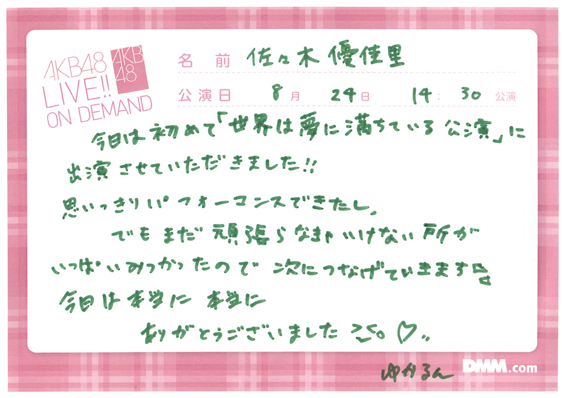 AKB48
LIVE!!
ON DEMAND
AKB
48
名前 佐々木優佳里
公演日 8月 24日 14:30 公演
今日は初めて「世界は夢に満ちている公演」に
出演させていただきました!!
思いっきりパフォーマンスできたし、
でもまだ頑張らなきゃいけない所が
いっぱいみつかったので次につなげていきます
今日は本当に本当に
ありがとうございました
ゆかるん
DMM.com